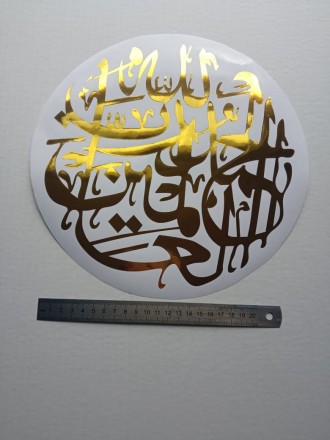 الحمد لله رب العالمين
1 2 3 4 5 6 7 8 9 10 11 12 13 14 15 16 17 18 19 20